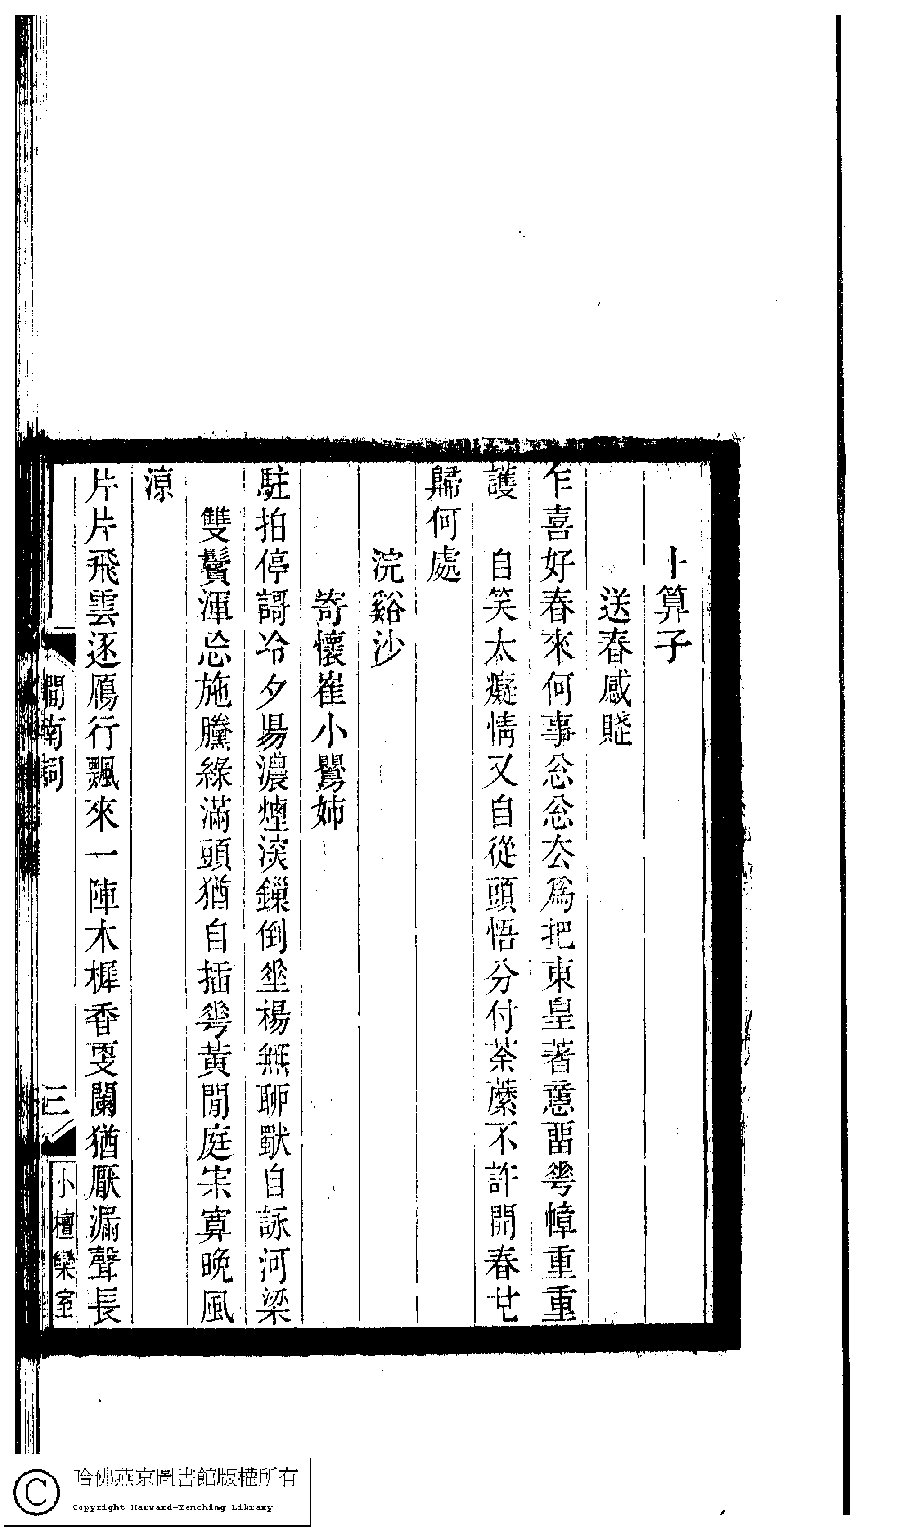 卜算子
送春感賦
乍喜好春來何事忩忩厺爲把東皇著意畱㠔幛重重
護　自笑太癡情又自從頭悟分付荼蘼不許開春㞢
歸何處
浣谿沙
寄懷崔小鸎姊
駐拍停謌冷夕昜濃煙淡鏁倒垂楊無聊獸自詠河梁
雙鬢渾忘施騰綠滿頭猶自插㠔黃閒庭宋寞晚風
涼
片片飛雲逐鴈行飄來一陣木樨香更闌猶厭漏聲長
澗南詞
三
小檀欒室
哈佛燕京圖書館版權所有
Copyright Harvard-Yenching Library